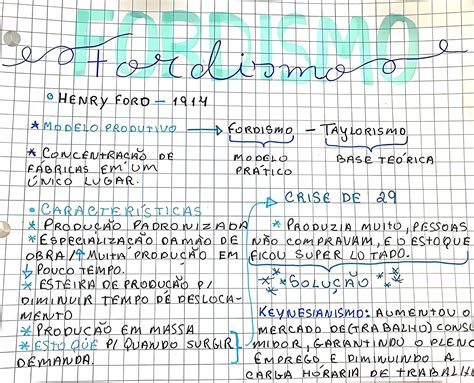 FORDISMO
Fordismo
HENRY FORD – 1914
* MODELO PRODUTIVO → FORDISMO – TAYLORISMO
MODELO PRÁTICO
BASE TEÓRICA
* CONCENTRAÇÃO DE
FÁBRICAS EM UM
ÚNICO LUGAR.
• CARACTERÍSTICAS
* PRODUÇÃO PADRONIZADA
* ESPECIALIZAÇÃO DA MÃO DE
OBRA/↑MUITA PRODUÇÃO EM
↓POUCO TEMPO.
* ESTEIRA DE PRODUÇÃO P/
DIMINUIR TEMPO DE DESLOCA-
MENTO
* PRODUÇÃO EM MASSA
* ESTOQUE P/ QUANDO SURGIR
DEMANDA.
→ CRISE DE 29
* PRODUZIA MUITO, PESSOAS
NÃO COMPRAVAM, E O ESTOQUE
FICOU SUPER LOTADO.
* * SOLUÇÃO * *
KEYNESIANISMO: AUMENTOU O
MERCADO DE (TRABALHO) CONSU
MIDOR, GARANTINDO O PLENO
EMPREGO E DIMINUINDO A
CARGA HORÁRIA DE TRABALH